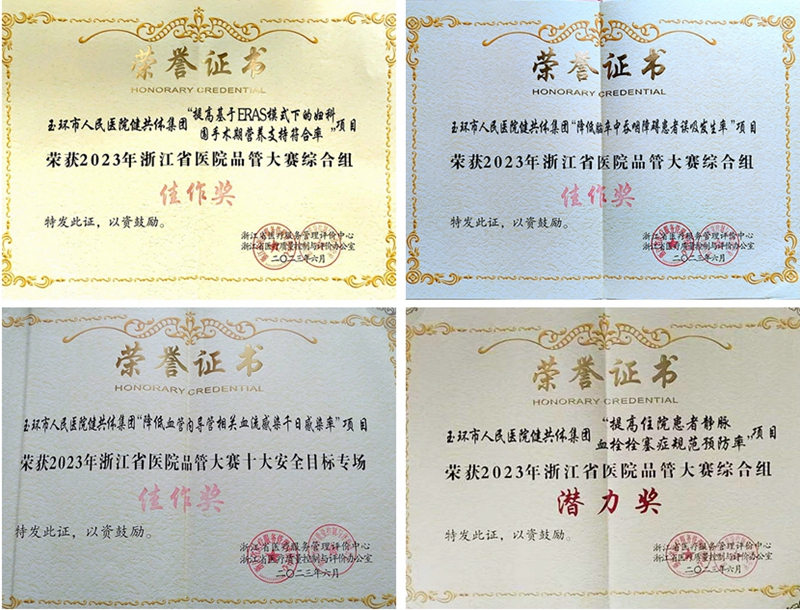 荣誉证书
HONORARY CREDENTIAL
玉环市人民医院健共体集团“提高基于ERAS模式下的妇科
围手术期营养支持符合率”项目
荣获2023年浙江省医院品管大赛综合组
佳作奖
特发此证，以资鼓励。
浙江省医疗服务管理评价中心
浙江省医疗质量控制与评价办公室
二〇二三年六月
荣誉证书
HONORARY CREDENTIAL
玉环市人民医院健共体集团“降低脑卒中吞咽障碍患者误吸发生率”项目
荣获2023年浙江省医院品管大赛综合组
佳作奖
特发此证，以资鼓励。
浙江省医疗服务管理评价中心
浙江省医疗质量控制与评价办公室
二〇二三年六月
荣誉证书
HONORARY CREDENTIAL
玉环市人民医院健共体集团“降低血管内导管相关血流感染千日感染率”项目
荣获2023年浙江省医院品管大赛十大安全目标专场
佳作奖
特发此证，以资鼓励。
浙江省医疗服务管理评价中心
浙江省医疗质量控制与评价办公室
二〇二三年六月
荣誉证书
HONORARY CREDENTIAL
玉环市人民医院健共体集团“提高住院患者静脉
血栓栓塞症规范预防率”项目
荣获2023年浙江省医院品管大赛综合组
潜力奖
特发此证，以资鼓励。
浙江省医疗服务管理评价中心
浙江省医疗质量控制与评价办公室
二〇二三年六月